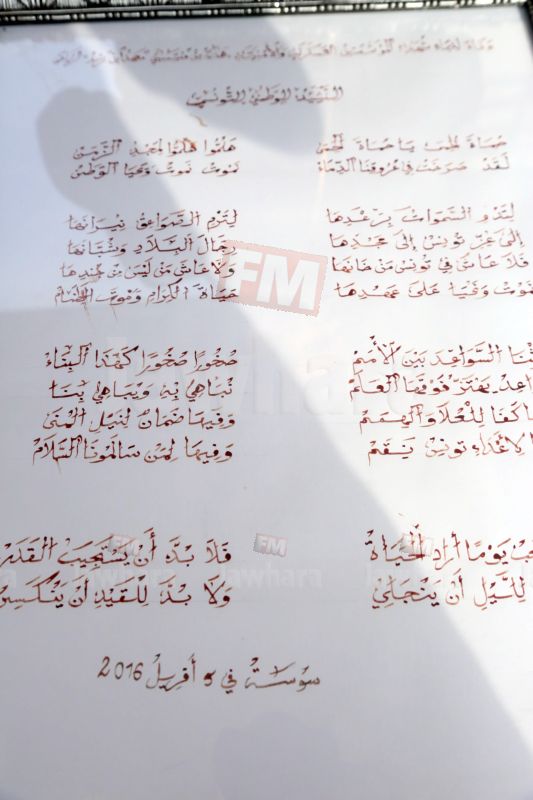 وفاء لدماء شهداء المؤسستين العسكرية والأمنية
النشيد الوطني التونسي
حماة الحمى يا حماة الحمى هلموا هلموا لمجد الزمن
لقد صرخت في عروقنا الدماء نموت نموت ويحيا الوطن
لتدو السموات برعدها لترم الصواعق نيرانها
إلى عز تونس إلى مجدها رجال البلاد وشبانها
فلا عاش في تونس من خانها ولا عاش من ليس من جندها
نموت ونحيا على عهدها حياة الكرام وموت العظام
السواعد بين الأمم صخورا صخورا كهذا البناء
يهتز فوقها العلم نباهي به ويباهي بنا
كفا للعلا والهمم وفيها ضمان لنيل المنى
لأعداء تونس نقم وفيها لمن سالمونا السلام
يوما أراد الحياة فلا بد أن يستجيب القدر
لليل أن ينجلي ولا بد للقيد أن ينكسر
سوسة في 5 أفريل 2016
FM
Jawhara